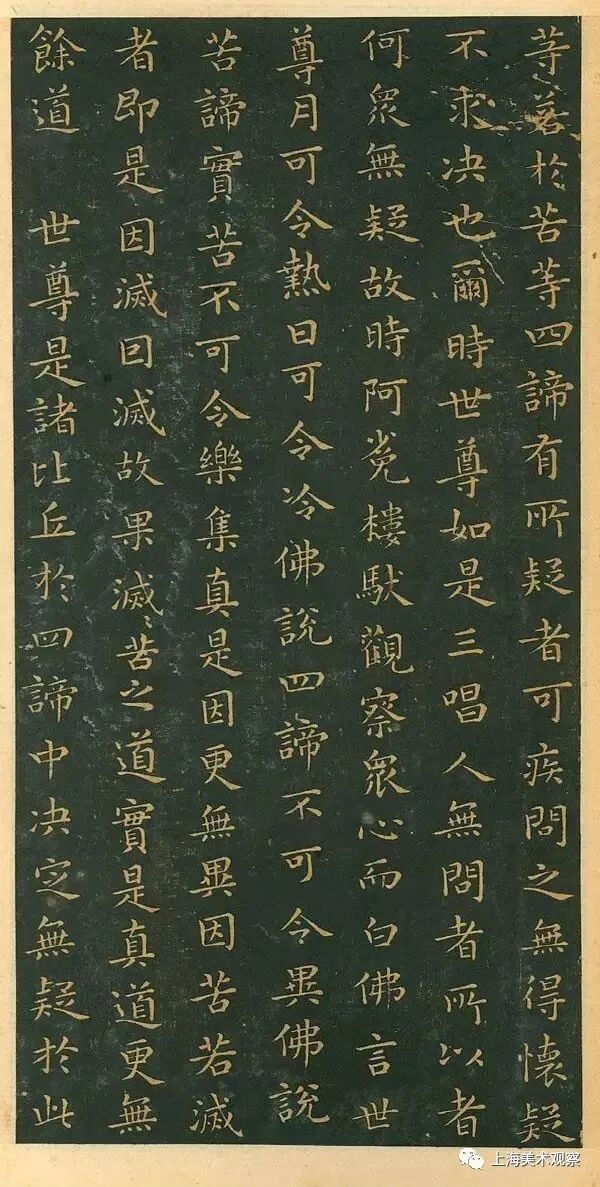 等若於苦等四諦有所疑者可疾問之無得懷疑
不求决也爾時世尊如是三唱人無問者所以者
何衆無疑故時阿㝹樓馱觀察衆心而白佛言世
尊月可令熱日可令冷佛說四諦不可令異佛說
苦諦實苦不可令樂集真是因更無異因苦若滅
者即是因滅因滅故果滅〻苦之道實是真道更無
餘道　世尊是諸比丘於四諦中决定無疑於此
上海美术观察